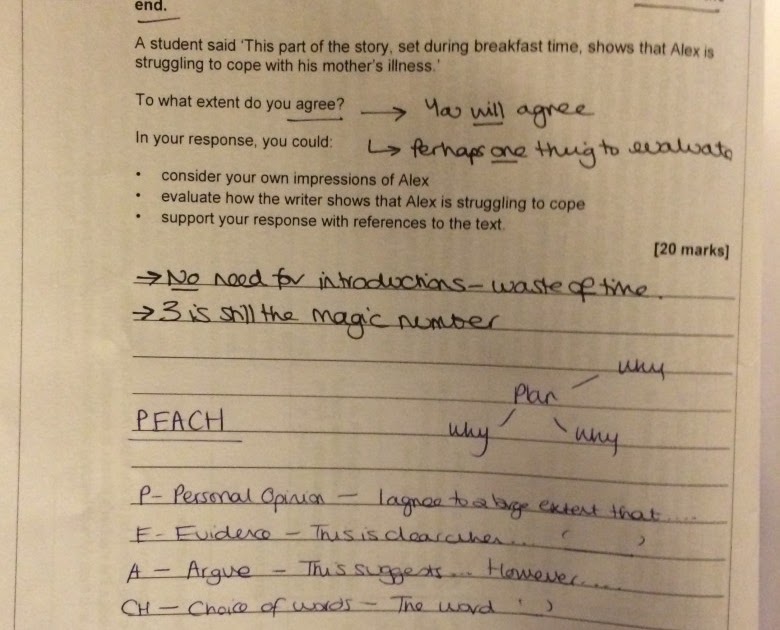 end.
A student said 'This part of the story, set during breakfast time, shows that Alex is
struggling to cope with his mother's illness.'
To what extent do you agree? → You will agree
In your response, you could: ↳ Perhaps one thing to evaluate
• consider your own impressions of Alex
• evaluate how the writer shows that Alex is struggling to cope
• support your response with references to the text.
[20 marks]
→ No need for introductions – waste of time.
→ 3 is still the magic number
why
Plan
PEACH
why why
P – Personal Opinion – I agree to a large extent that....
E – Evidence – This is clear when... ' '
A – Argue – This suggests... However....
CH – Choice of words – The word ' '